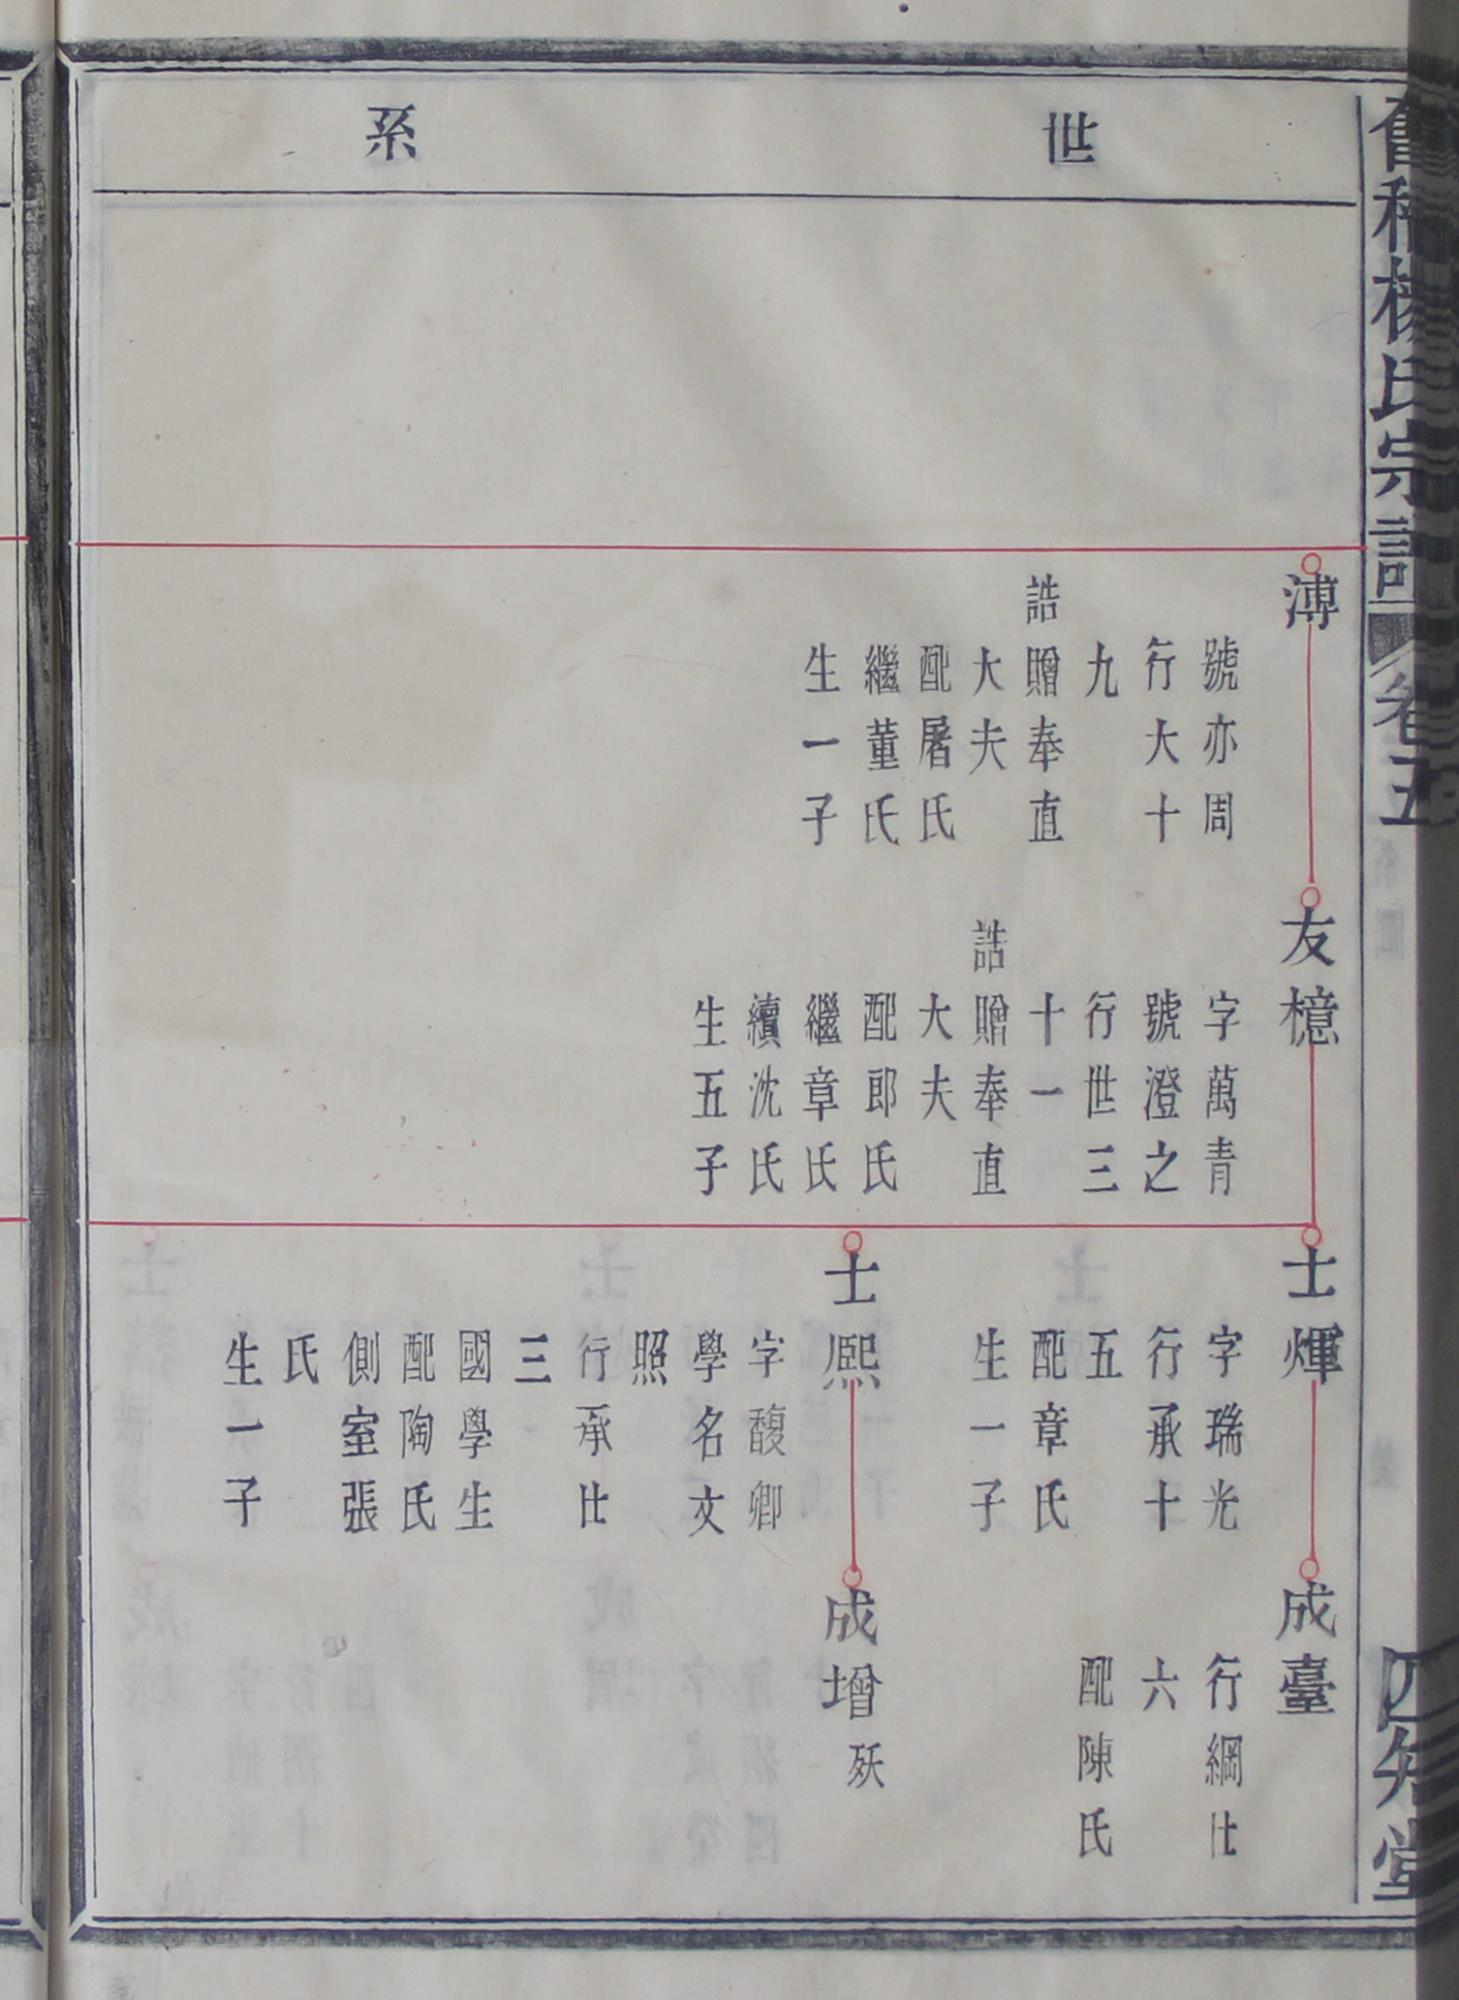 世系
舊楊氏宗譜
卷五
四知堂
溥
號亦周
行大十
九
誥贈奉直
大夫
配屠氏
繼董氏
生一子
友檍
字萬青
號澄之
行世三
十一
誥贈奉直
大夫
配郎氏
繼章氏
續沈氏
生五子
士煇
字瑞光
行承十
五
配章氏
生一子
士熙
字馥卿
學名文
照
行承廿
三
國學生
配陶氏
側室張
氏
生一子
成臺
行綱廿
六
配陳氏
成增
殀